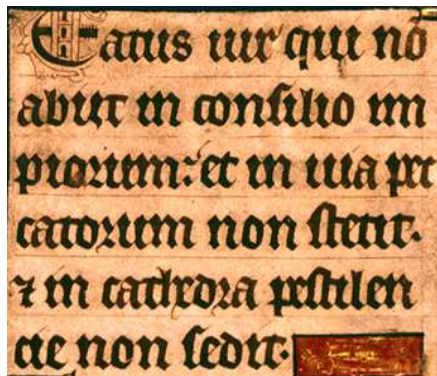 Eatus uir qui no
abijt in consilio im
piorum: et in uia pec
catorum non stetit.
⁊ in cathedra pestilen
cie non sedit.